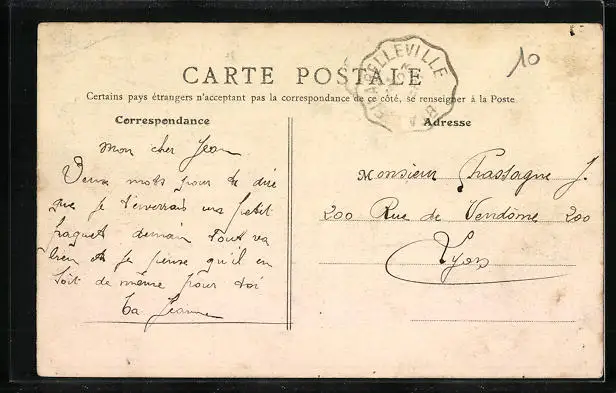 BELLEVILLE
10
CARTE POSTALE
Certains pays étrangers n'acceptant pas la correspondance de ce côté, se renseigner à la Poste
Correspondance
Mon cher Jean
Deux mots pour te dire
que je t'enverrais un petit
paquet demain Tout va
bien et je pense qu'il en
soit de même pour toi
Ta Jeanne
Adresse
Monsieur Chassagne J.
200 Rue de Vendôme 200
Lyon